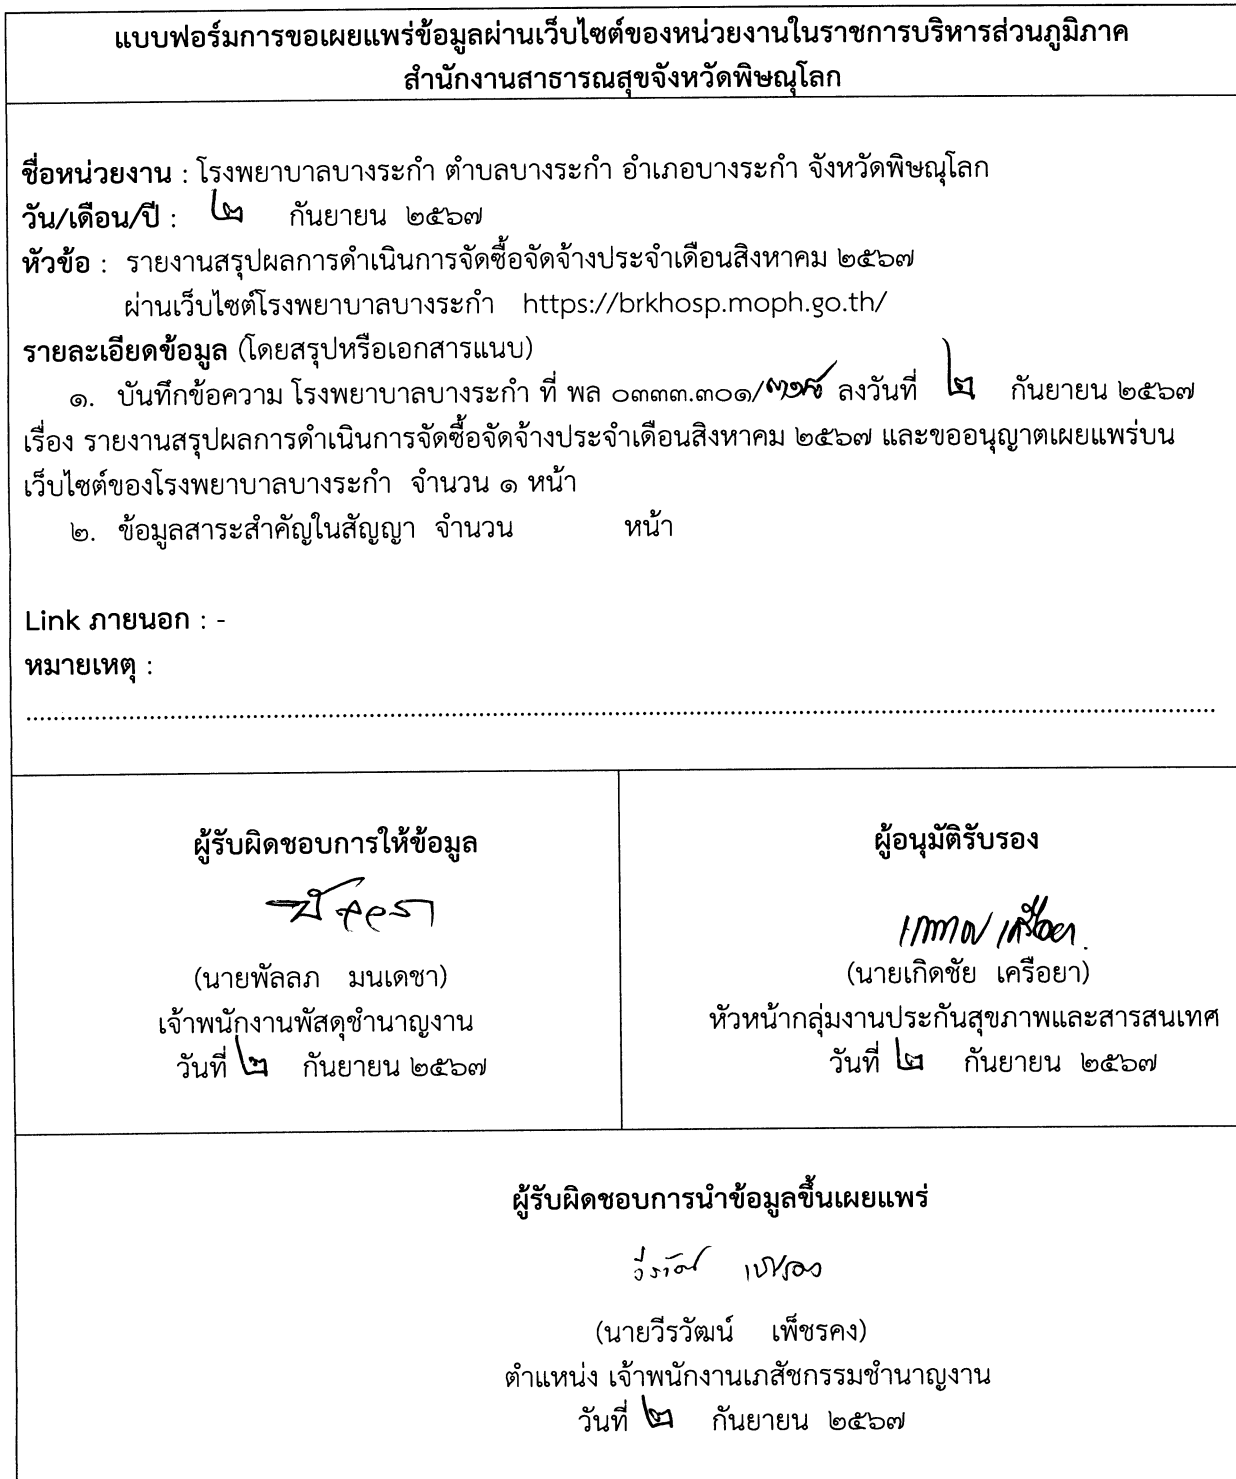 แบบฟอร์มการขอเผยแพร่ข้อมูลผ่านเว็บไซต์ของหน่วยงานในราชการบริหารส่วนภูมิภาค
สำนักงานสาธารณสุขจังหวัดพิษณุโลก
ชื่อหน่วยงาน : โรงพยาบาลบางระกำ ตำบลบางระกำ อำเภอบางระกำ จังหวัดพิษณุโลก
วัน/เดือน/ปี : ๒ กันยายน ๒๕๖๗
หัวข้อ : รายงานสรุปผลการดำเนินการจัดซื้อจัดจ้างประจำเดือนสิงหาคม ๒๕๖๗
ผ่านเว็บไซต์โรงพยาบาลบางระกำ https://brkhosp.moph.go.th/
รายละเอียดข้อมูล (โดยสรุปหรือเอกสารแนบ)
๑. บันทึกข้อความ โรงพยาบาลบางระกำ ที่ พล ๐๓๓๓.๓๐๑/ ลงวันที่ ๒ กันยายน ๒๕๖๗
เรื่อง รายงานสรุปผลการดำเนินการจัดซื้อจัดจ้างประจำเดือนสิงหาคม ๒๕๖๗ และขออนุญาตเผยแพร่บน
เว็บไซต์ของโรงพยาบาลบางระกำ จำนวน ๑ หน้า
๒. ข้อมูลสาระสำคัญในสัญญา จำนวน หน้า
Link ภายนอก : -
หมายเหตุ :
ผู้รับผิดชอบการให้ข้อมูล
(นายพัลลภ มนเดชา)
เจ้าพนักงานพัสดุชำนาญงาน
วันที่ ๒ กันยายน ๒๕๖๗
ผู้อนุมัติรับรอง
(นายเกิดชัย เครือยา)
หัวหน้ากลุ่มงานประกันสุขภาพและสารสนเทศ
วันที่ ๒ กันยายน ๒๕๖๗
ผู้รับผิดชอบการนำข้อมูลขึ้นเผยแพร่
(นายวีรวัฒน์ เพ็ชรคง)
ตำแหน่ง เจ้าพนักงานเภสัชกรรมชำนาญงาน
วันที่ ๒ กันยายน ๒๕๖๗